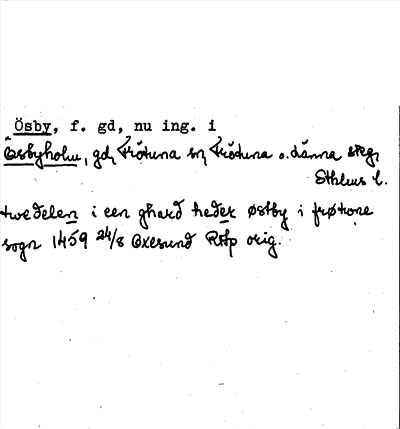 Ösby, f. gd, nu ing. i
Ösbyholm, gd, Frötuna sn, Frötuna o. Länna skg,
Sthlms l.
twedelen i een ghard heder østby i frøtone
sogn 1459 24/8 Oxesund RAp orig.